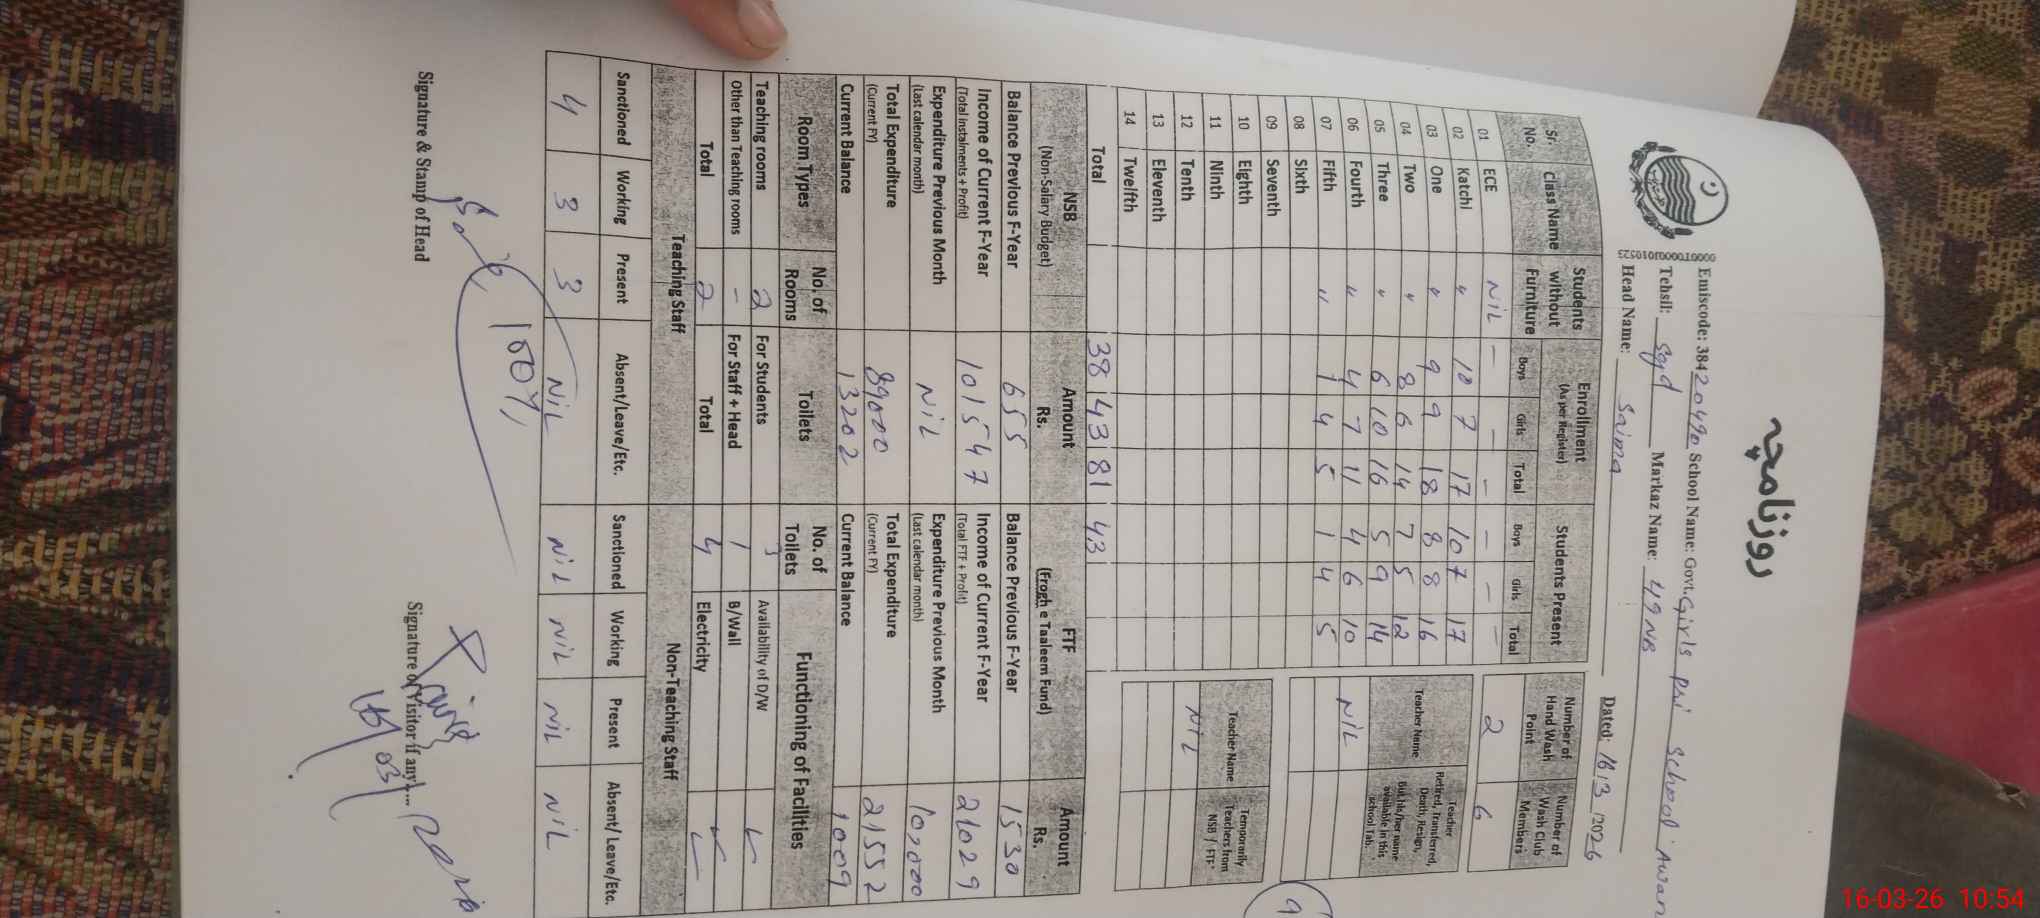 روزنامچہ
Emiscode: 38420490 School Name: Govt. Girls Pri School Awan
Tehsil: Sgd Markaz Name: 49 NB
Head Name: Saima Dated: 16/3/2026
00001000010101010523
Sr. No. Class Name Students without Furniture Enrollment (As per Register) Students Present
Boys Girls Total Boys Girls Total
01 ECE NiL - - - - - -
02 Katchi " 10 7 17 10 7 17
03 One " 9 9 18 8 8 16
04 Two " 8 6 14 7 5 12
05 Three " 6 10 16 5 9 14
06 Fourth " 4 7 11 4 6 10
07 Fifth " 1 4 5 1 4 5
08 Sixth
09 Seventh
10 Eighth
11 Ninth
12 Tenth
13 Eleventh
14 Twelfth
Total 38 43 81 43
Number of Hand Wash Point Number of Wash Club Members
2 6
Teacher Name Teacher Retired, Transferred, Death, Resign, But his/her name available in this school Tab.
NiL
Teacher Name Temporarily Teachers from NSB / FTF
NIL
NSB (Non-Salary Budget) Amount Rs. FTF (Frogh e Taaleem Fund) Amount Rs.
Balance Previous F-Year 655 Balance Previous F-Year 1530
Income of Current F-Year (Total Instalments + Profit) 101547 Income of Current F-Year (Total FTF + Profit) 21029
Expenditure Previous Month (Last calendar month) NiL Expenditure Previous Month (Last calendar month) 10,000
Total Expenditure (Current FY) 89000 Total Expenditure (Current FY) 21552
Current Balance 13202 Current Balance 1009
Room Types No. of Rooms Toilets No. of Toilets Functioning of Facilities
Teaching rooms 2 For Students 3 Availability of D/W ✓
Other than Teaching rooms - For Staff + Head 1 B/Wall ✓
Total 2 Total 4 Electricity ✓
Teaching Staff Non-Teaching Staff
Sanctioned Working Present Absent/Leave/Etc. Sanctioned Working Present Absent/Leave/Etc.
4 3 3 NiL NiL NiL NiL NiL
100%
Signature & Stamp of Head Signature of Visitor if any....
16-03-26 10:54